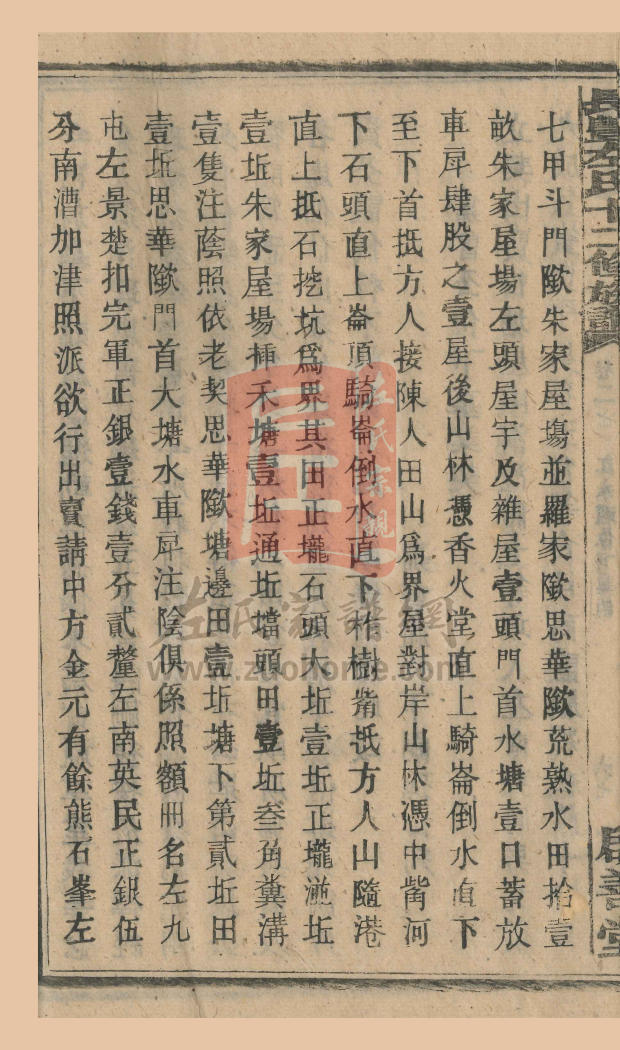 長𡩋左氏十二修族譜
啟善堂
七甲斗門陂朱家屋塲並羅家陂思華陂荒熟水田拾壹
畝朱家屋場左頭屋宇及雜屋壹頭門首水塘壹口蓄放
車戽肆股之壹屋後山林憑香火堂直上騎崙倒水直下
至下首抵方人接陳人田山爲界屋對岸山林憑中嘴河
下石頭直上崙頂騎崙倒水直下柞樹嘴抵方人山隨港
直上抵石挖坑爲界其田正壠石頭大坵壹坵正壠坵
壹坵朱家屋場揷禾塘壹坵通坵壋頭田壹坵叁角糞溝
壹隻注蔭照依老契思華陂塘邊田壹坵塘下第貳坵田
壹坵思華陂門首大塘水車戽注陰俱係照額冊名左九
屯左景楚扣完軍正銀壹錢壹分貳釐左南英民正銀伍
分南漕加津照派欲行出賣請中方金元有餘熊石峯左
左氏宗親
左氏家譜網
www.zuohome.com